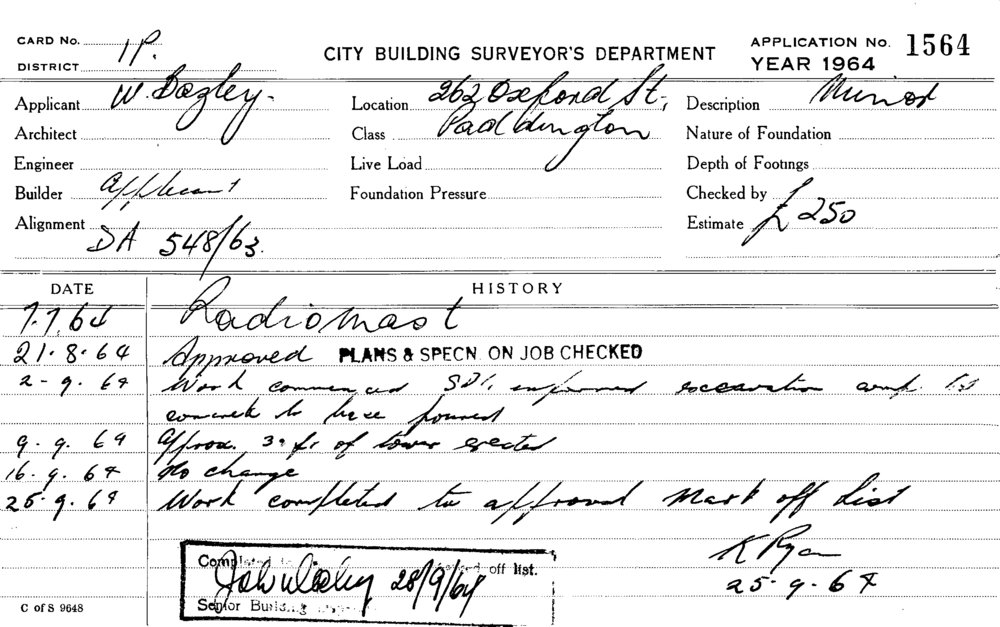 CARD No. 1P.
CITY BUILDING SURVEYOR'S DEPARTMENT
APPLICATION No. 1564
DISTRICT
YEAR 1964
Applicant W. Bazley.
Location 262 Oxford St,
Description Minor
Architect
Class Paddington
Nature of Foundation
Engineer
Live Load
Depth of Footings
Builder Applicant
Foundation Pressure
Checked by
Alignment
Estimate £250
DA 548/63.
DATE HISTORY
7.7.64 Radiomast
21.8.64 Approved PLANS & SPECN. ON JOB CHECKED
2-9.64 Work commenced informed excavation comp.
concrete to base poured
9.9.64 Approx. 30 ft of tower erected
16.9.64 No change
25.9.64 Work completed to approval Mark off List
K Ryan
25-9-64
Completed off list.
28/9/64
Senior Building
C of S 9648